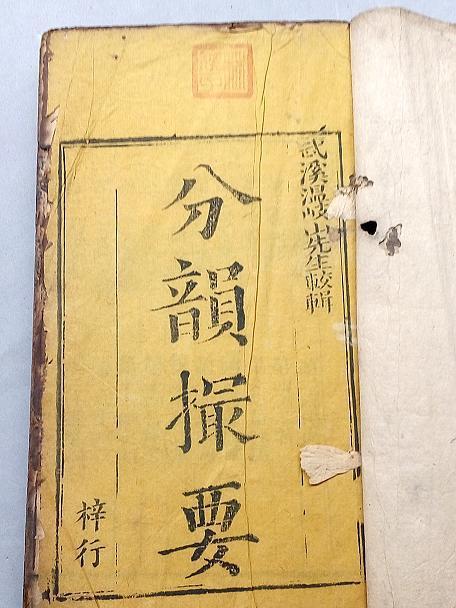 武溪温岐山先生較輯
分韻撮要
梓行